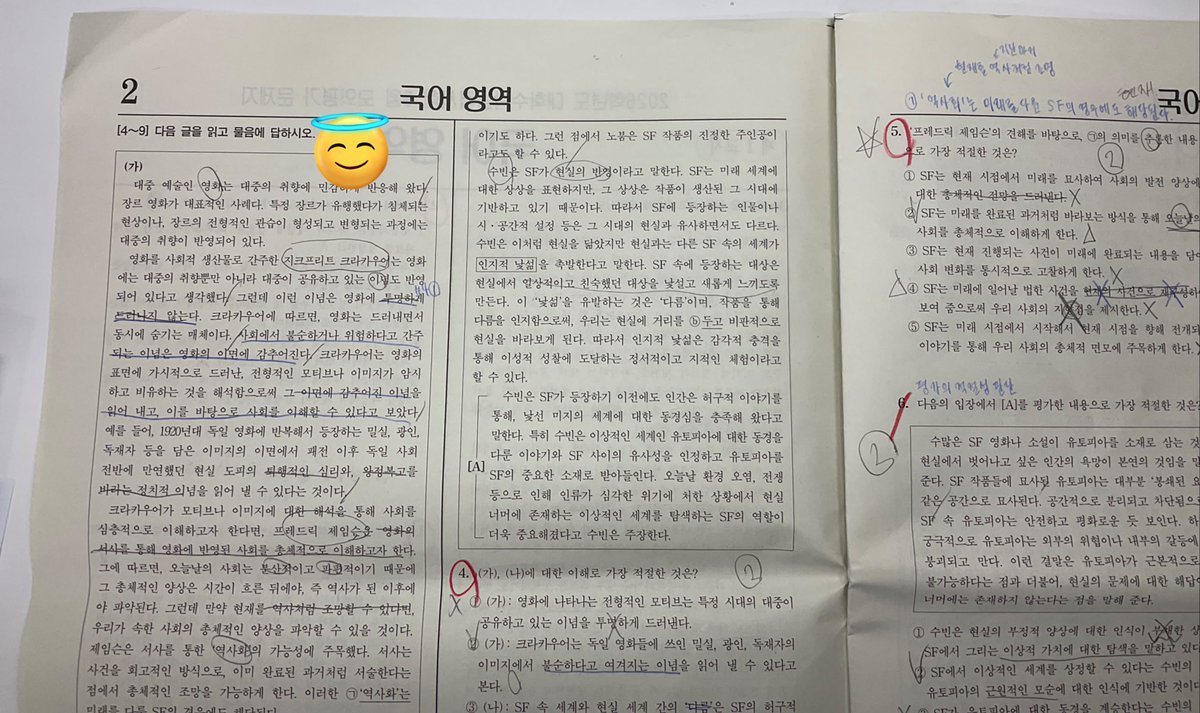 2
국어 영역
[4～9] 다음 글을 읽고 물음에 답하시오.
(가)
대중 예술인 영화는 대중의 취향에 민감하게 반응해 왔다.
장르 영화가 대표적인 사례다. 특정 장르가 유행했다가 침체되는
현상이나, 장르의 전형적인 관습이 형성되고 변형되는 과정에는
대중의 취향이 반영되어 있다.
영화를 사회적 생산물로 간주한 지크프리트 크라카우어는 영화
에는 대중의 취향뿐만 아니라 대중이 공유하고 있는 이념도 반영
되어 있다고 생각했다. 그런데 이런 이념은 영화에 투명하게
드러나지 않는다. 크라카우어에 따르면, 영화는 드러내면서
동시에 숨기는 매체이다. 사회에서 불순하거나 위험하다고 간주
되는 이념은 영화의 이면에 감추어진다. 크라카우어는 영화의
표면에 가시적으로 드러난, 전형적인 모티브나 이미지가 암시
하고 비유하는 것을 해석함으로써 그 이면에 감추어진 이념을
읽어 내고, 이를 바탕으로 사회를 이해할 수 있다고 보았다.
예를 들어, 1920년대 독일 영화에 반복해서 등장하는 밀실, 광인,
독재자 등을 담은 이미지의 이면에서 패전 이후 독일 사회
전반에 만연했던 현실 도피의 퇴행적인 심리와, 왕정복고를
바라는 정치적 이념을 읽어 낼 수 있다는 것이다.
크라카우어가 모티브나 이미지에 대한 해석을 통해 사회를
심층적으로 이해하고자 한다면, 프레드릭 제임슨은 영화의
서사를 통해 영화에 반영된 사회를 총체적으로 이해하고자 한다.
그에 따르면, 오늘날의 사회는 분산적이고 파편적이기 때문에
그 총체적인 양상은 시간이 흐른 뒤에야, 즉 역사가 된 이후에
야 파악된다. 그런데 만약 현재를 역사처럼 조망할 수 있다면,
우리가 속한 사회의 총체적인 양상을 파악할 수 있을 것이다.
제임슨은 서사를 통한 역사화의 가능성에 주목했다. 서사는
사건을 회고적인 방식으로, 이미 완료된 과거처럼 서술한다는
점에서 총체적인 조망을 가능하게 한다. 이러한 ㉠'역사화'는
미래를 다룬 SF의 경우에도 해당된다.
이기도 하다. 그런 점에서 노붐은 SF 작품의 진정한 주인공이
라고도 할 수 있다.
수빈은 SF가 현실의 반영이라고 말한다. SF는 미래 세계에
대한 상상을 표현하지만, 그 상상은 작품이 생산된 그 시대에
기반하고 있기 때문이다. 따라서 SF에 등장하는 인물이나
시·공간적 설정 등은 그 시대의 현실과 유사하면서도 다르다.
수빈은 이처럼 현실을 닮았지만 현실과는 다른 SF 속의 세계가
인지적 낯섦을 촉발한다고 말한다. SF 속에 등장하는 대상은
현실에서 일상적이고 친숙했던 대상을 낯설고 새롭게 느끼도록
만든다. 이 '낯섦'을 유발하는 것은 '다름'이며, 작품을 통해
다름을 인지함으로써, 우리는 현실에 거리를 ⓑ두고 비판적으로
현실을 바라보게 된다. 따라서 인지적 낯섦은 감각적 충격을
통해 이성적 성찰에 도달하는 정서적이고 지적인 체험이라고
할 수 있다.
수빈은 SF가 등장하기 이전에도 인간은 허구적 이야기를
통해, 낯선 미지의 세계에 대한 동경심을 충족해 왔다고
말한다. 특히 수빈은 이상적인 세계인 유토피아에 대한 동경을
다룬 이야기와 SF 사이의 유사성을 인정하고 유토피아를
[A] SF의 중요한 소재로 받아들인다. 오늘날 환경 오염, 전쟁
등으로 인해 인류가 심각한 위기에 처한 상황에서 현실
너머에 존재하는 이상적인 세계를 탐색하는 SF의 역할이
더욱 중요해졌다고 수빈은 주장한다.
4. (가), (나)에 대한 이해로 가장 적절한 것은?
②
① (가): 영화에 나타나는 전형적인 모티브는 특정 시대의 대중이
공유하고 있는 이념을 투명하게 드러낸다.
② (가): 크라카우어는 독일 영화들에 쓰인 밀실, 광인, 독재자의
이미지에서 불순하다고 여겨지는 이념을 읽어 낼 수 있다고
본다.
③ (나): SF 속 세계와 현실 세계 간의 '다름'은 SF의 허구적
국어
현재를 역사처럼 조명
㉠ '역사화'는 미래를 다룬 SF의 경우에도 해당된다.
현재
5. '프레드릭 제임슨'의 견해를 바탕으로, ㉠의 의미를 추론한 내용
으로 가장 적절한 것은?
②
① SF는 현재 시점에서 미래를 묘사하여 사회의 발전 양상에
대한 총체적인 전망을 드러낸다.
② SF는 미래를 완료된 과거처럼 바라보는 방식을 통해 오늘날의
사회를 총체적으로 이해하게 한다.
③ SF는 현재 진행되는 사건이 미래에 완료되는 내용을 담아
사회 변화를 통시적으로 고찰하게 한다.
④ SF는 미래에 일어날 법한 사건을
보여 줌으로써 우리 사회의 제시한다.
⑤ SF는 미래 시점에서 시작해서 현재 시점을 향해 전개되
이야기를 통해 우리 사회의 총체적 면모에 주목하게 한다.
평가의 적절성 판단
6. 다음의 입장에서 [A]를 평가한 내용으로 가장 적절한 것은?
②
수많은 SF 영화나 소설이 유토피아를 소재로 삼는 것
현실에서 벗어나고 싶은 인간의 욕망이 본연의 것임을 말
준다. SF 작품들에 묘사된 유토피아는 대부분 '봉쇄된 요
같은 공간으로 묘사된다. 공간적으로 분리되고 차단됨으
SF 속 유토피아는 안전하고 평화로운 듯 보인다. 하
궁극적으로 유토피아는 외부의 위협이나 내부의 갈등에
붕괴되고 만다. 이런 결말은 유토피아가 근본적으로
불가능하다는 점과 더불어, 현실의 문제에 대한 해답
너머에는 존재하지 않는다는 점을 말해 준다.
① 수빈은 현실의 부정적 양상에 대한 인식이 부족한 상
SF에서 그리는 이상적 가치에 대한 탐색을 말하고 있다
② SF에서 이상적인 세계를 상정할 수 있다는 수빈의
유토피아의 근원적인 모순에 대한 인식에 기반한 것이다
③ SF가 유토피아에 대한 동경을 계승한다는 수빈의